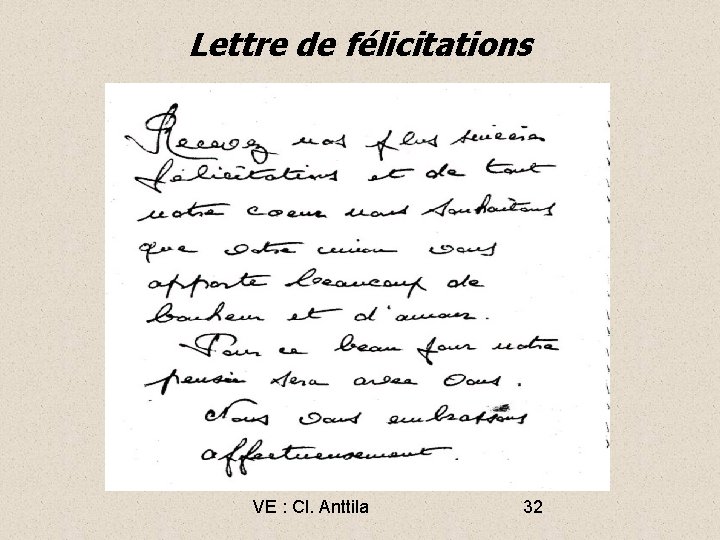 Lettre de félicitations
Recevez nos plus sincères
félicitations et de tout
notre coeur nous souhaitons
que votre union vous
apporte beaucoup de
bonheur et d'amour.
Pour ce beau jour notre
pensée sera avec vous.
Nous vous embrassons
affectueusement.
VE : Cl. Anttila
32